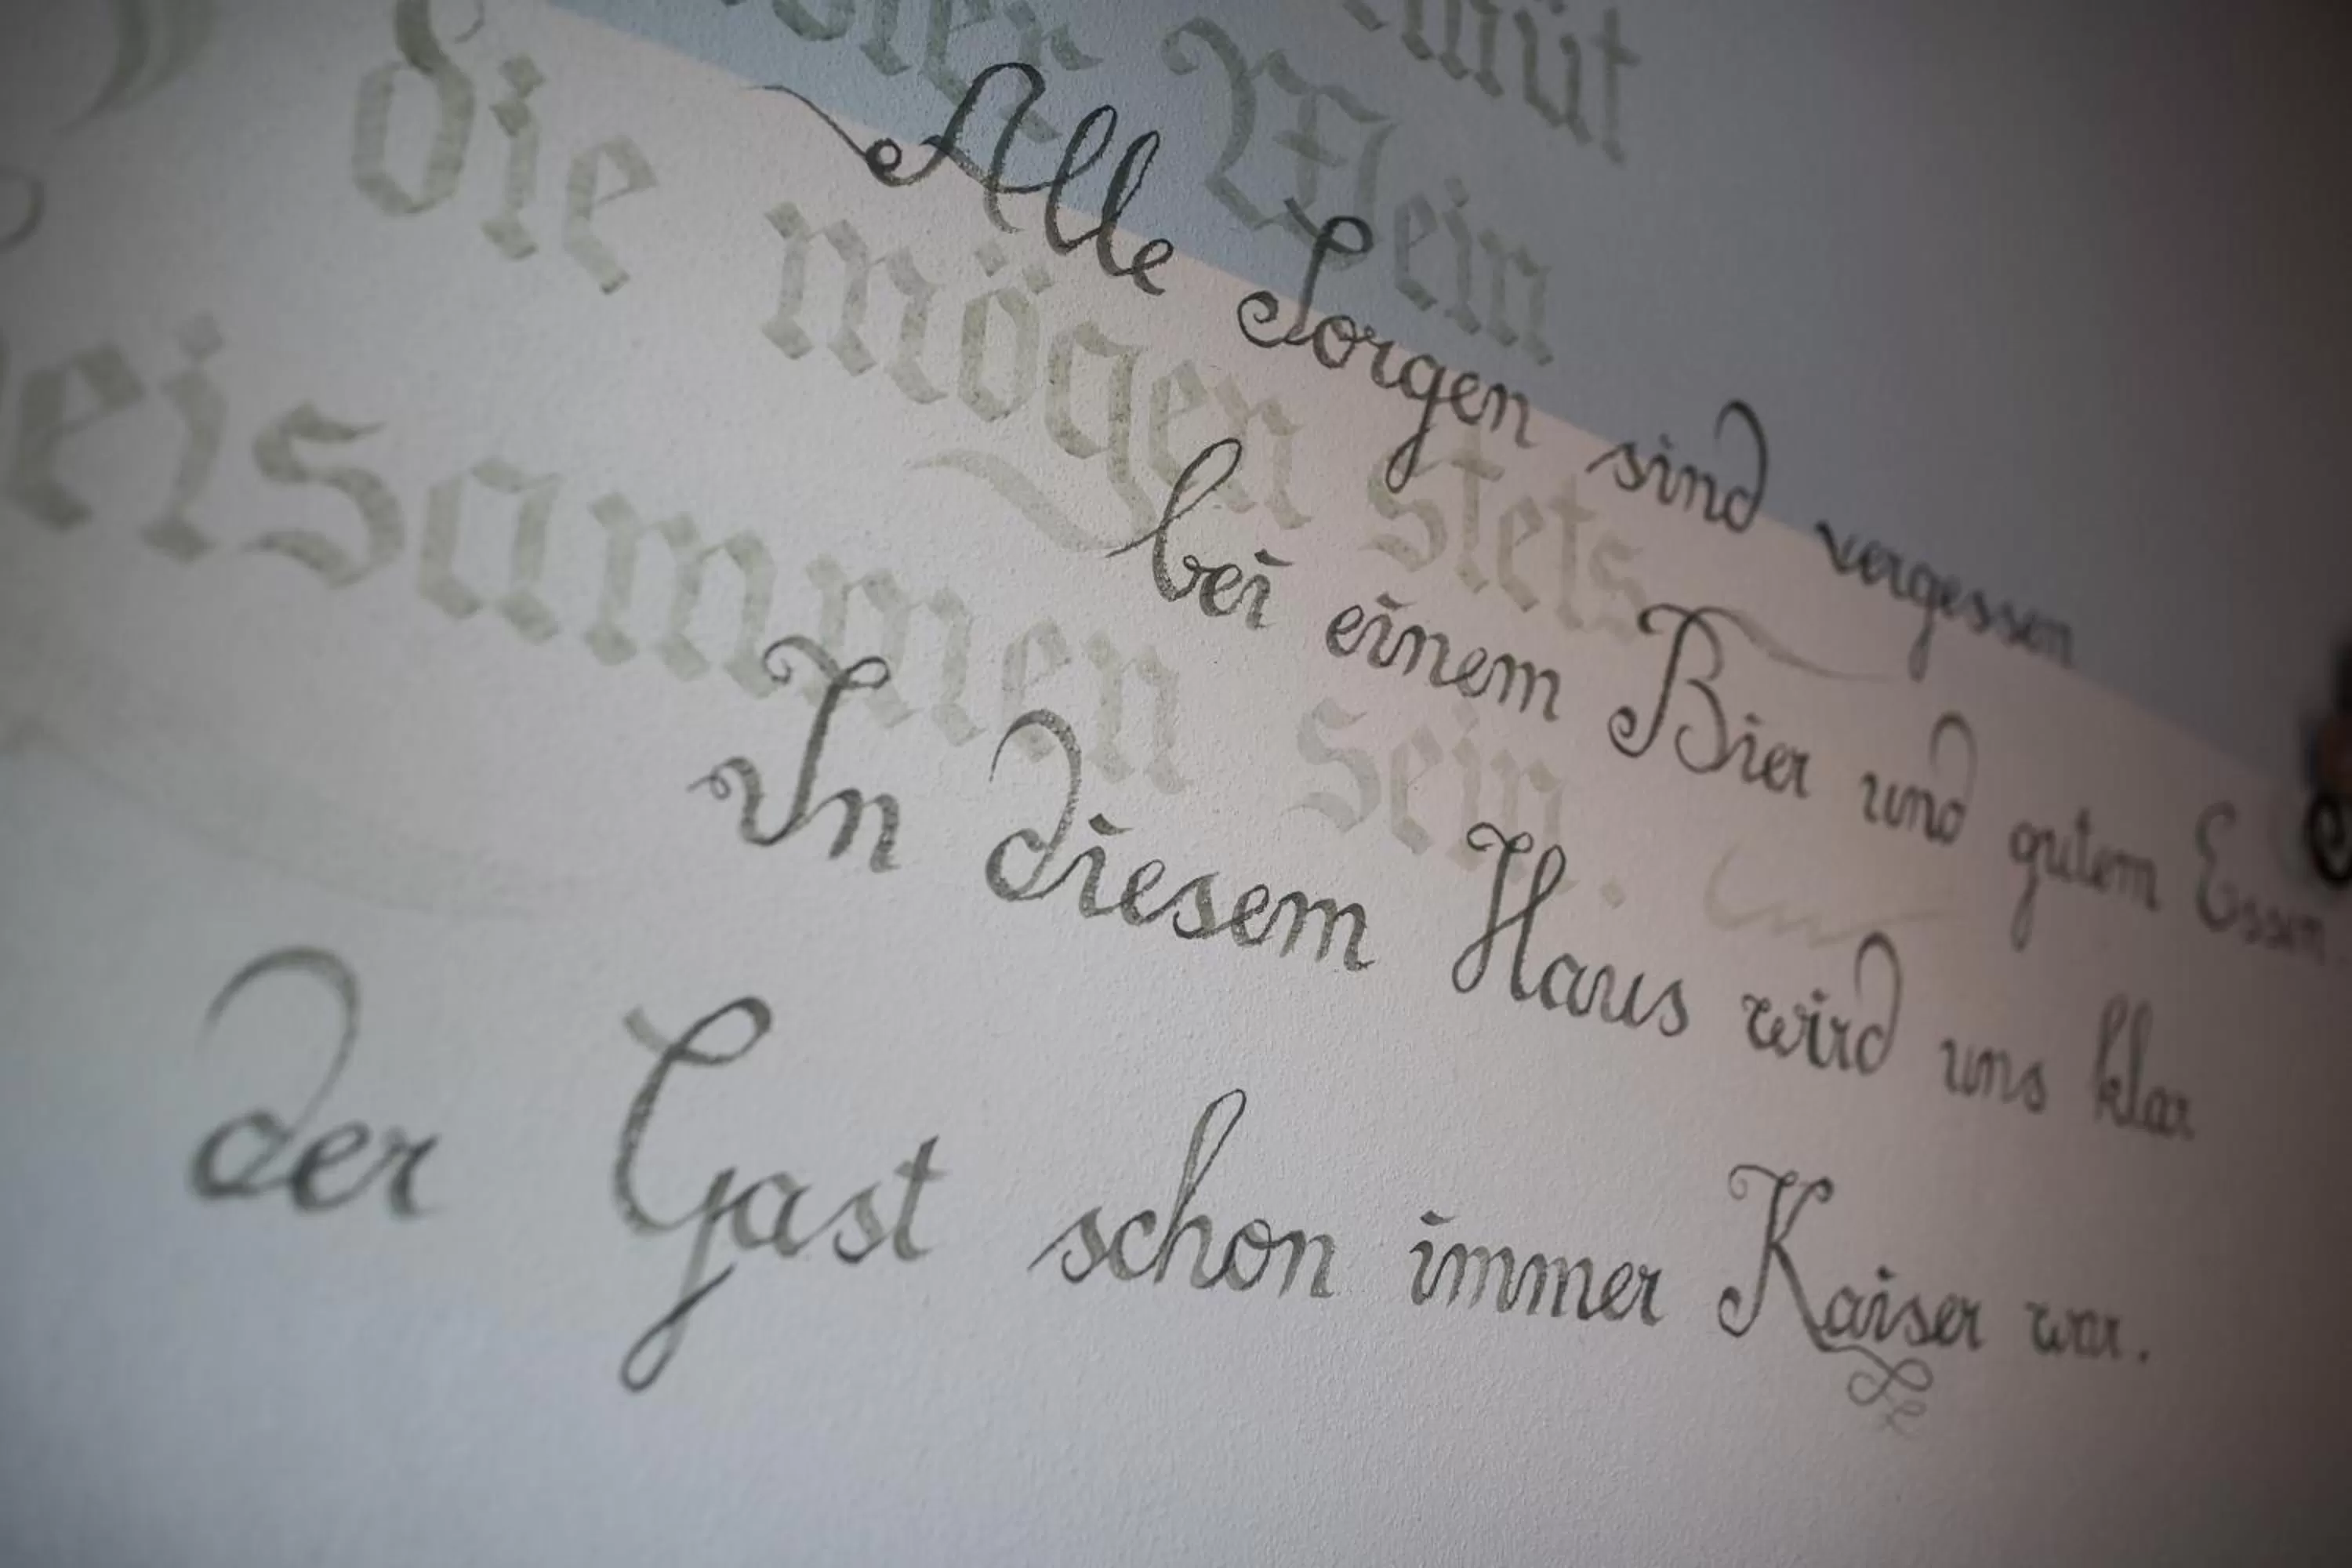 müt
oder Wein
die mögen stets
beisammen sein.
Alle Sorgen sind vergessen
bei einem Bier und gutem Essen.
In diesem Haus wird uns klar
der Gast schon immer Kaiser war.